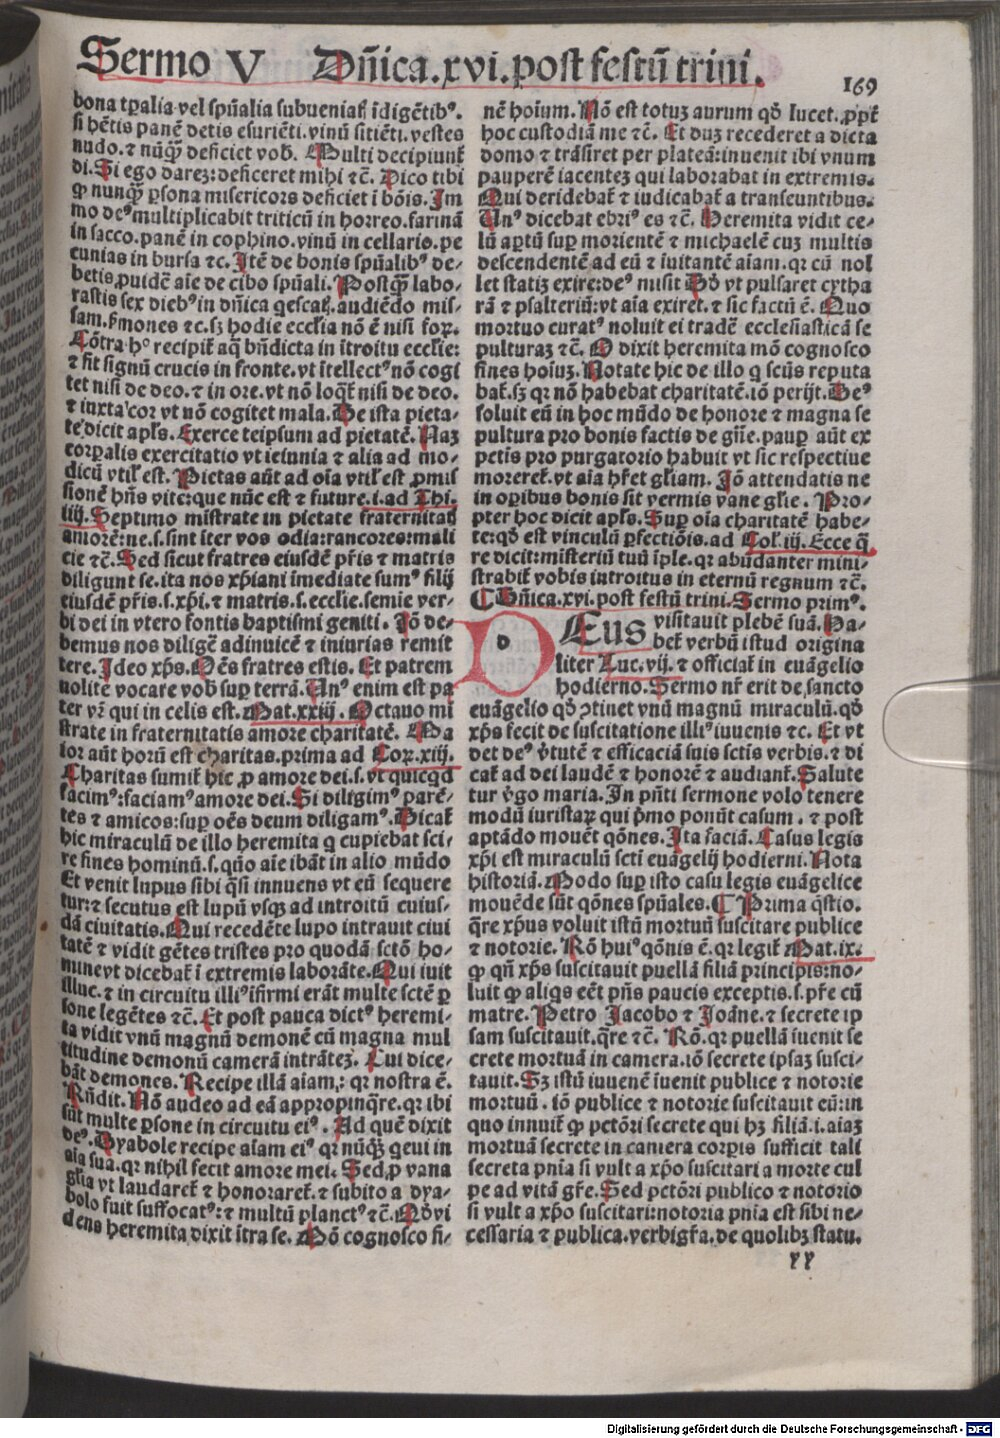 Sermo V Dn̄ica.xvi.post festū trini.
169
bona tꝑalia vel spūalia subueniaſ īdigētib⁹.
si hētis panē detis esuriēti.vinū sitiēti.vestes
nudo.⁊ nūꝙ̄ deficiet vob. Multi decipiunt
di.Si ego darez:deficeret mihi ⁊c̄. Dico tibi
ꝙ nunꝙ̄ ꝑsona misericors deficiet i bōis. Im
mo de⁹ multiplicabit triticū in horreo.farinā
in sacco.panē in cophino.vinū in cellario.pe
cunias in bursa ⁊c. Itē de bonis spūalib⁹ de-
betis ꝓuidē aīe de cibo spūali. Postꝙ̄ labo-
rastis sex dieb⁹ in dn̄ica qescat̄.audiēdo mis-
sam.s̄mones ⁊c.sꝫ hodie eccl̄ia nō ē nisi foꝝ.
Cōtra hᵒ recipit̄ aq̄ bn̄dicta in ītroitu eccl̄ie:
⁊ fit signū crucis in fronte.vt ītellect⁹ nō cogi
tet nisi de deo.⁊ in ore.vt nō loqt̄ nisi de deo.
⁊ iuxta cor vt nō cogitet mala. De ista pieta-
te dicit apl̄s. Exerce teipsum ad pietatē. Naꝫ
corꝑalis exercitatio vt ieiunia ⁊ alia ad mo-
dicū vtil̄ est. Pietas aūt ad oīa vtil̄ est ꝓmis
sionē hn̄s vite:que nūc est ⁊ future.i.ad Thi.
iiij. Septimo mīstrate in pietate fraternitatꝭ
amorē:ne.s.sint īter vos odia:rancores:mali
cie ⁊c̄. Sed sicut fratres eiusdē pr̄is ⁊ matris
diligunt se.ita nos xp̄iani īmediate sum⁹ filij
eiusdē pr̄is.s.xp̄i.⁊ matris.s.ecclie.semie ver-
bi dei in vtero fontis baptismi geniti. Iō de-
bemus nos diligē adinuicē ⁊ iniurias remit
tere. Ideo xp̄s. Oēs fratres estis. Et patrem
nolite vocare vob suꝑ terrā. Vn⁹ enim est pa
ter vr̄ qui in celis est. Mat.xxiij. Octauo mi
strate in fraternitatis amore charitatē. Ma
ior aūt horū est charitas.prima ad Cor.xiij.
Charitas sumit̄ hic ꝓ amore dei.s.vt quicqd
facim⁹:faciam⁹ amore dei. Si diligim⁹ parē-
tes ⁊ amicos:suꝑ oēs deum diligam⁹. Dicat̄
hic miraculū de illo heremita q cupiebat sci-
re fines hominū.s.quō aīe ibāt in alio mūdo
Et venit lupus sibi q̄si innuens vt eū sequere
tur:⁊ secutus est lupū vsqꝫ ad introitū cuius-
dā ciuitatis. Qui recedēte lupo intrauit ciui
tatē ⁊ vidit gētes tristes pro quodā sctō ho-
mine vt dicebat̄ i extremis laborāte. Qui iuit
illuc.⁊ in circuitu illi⁹ īfirmi erāt multe sctē ꝑ
sone legētes ⁊c̄. Et post pauca dict⁹ heremi-
ta vidit vnū magnū demonē cū magna mul
titudine demonū camerā intrātez. Cui dice-
bāt demones. Recipe illā aīam,: qꝛ nostra ē.
Rn̄dit. Nō audeo ad eā appropinq̄re.qꝛ ibi
sūt multe ꝑsone in circuitu ei⁹. Ad quē dixit
de⁹. Dyabole recipe aīam ei⁹ qꝛ nūꝙ̄ qeui in
aīa sua.qꝛ nihil fecit amore mei. Sed ꝓ vana
gl̄ia vt laudaret̄ ⁊ honoraret̄.⁊ subito a dya-
bolo fuit suffocat⁹:⁊ multū planct⁹ ⁊c̄. Qd̄ vi
dens heremita dixit ītra se. Nō cognosco fi-
nē hoīum. Nō est totuꝫ aurum qd̄ lucet.ꝓpt̄
hoc custodiā me ⁊c̄. Et duꝫ recederet a dicta
domo ⁊ trāsiret per plateā:inuenit ibi vnum
pauperē iacenteꝫ qui laborabat in extremis.
Qui deridebat̄ ⁊ iudicabat̄ a transeuntibus.
Vn⁹ dicebat ebri⁹ es ⁊c̄. Heremita vidit ce-
lū aꝑtū suꝑ morientē ⁊ michaelē cuꝫ multis
descendentē ad eū ⁊ iuitantē aīam.qꝛ cū nol
let statiꝫ exire:de⁹ misit Dd̄ vt pulsaret cytha
rā ⁊ psalteriū:vt aīa exiret.⁊ sic factū ē. Quo
mortuo curat⁹ noluit ei tradē ecclesiasticā se
pulturaꝫ ⁊c̄. O dixit heremita mō cognosco
fines hoīuꝫ. Notate hic de illo q scūs reputa
bat̄.sꝫ qꝛ nō habebat charitatē.iō perijt. De⁹
soluit eū in hoc mūdo de honore ⁊ magna se
pultura pro bonis factis de gn̄e.pauꝑ aūt ex
petīs pro purgatorio habuit vt sic respectiue
moreret̄.vt aīa hr̄et gl̄iam. Iō attendatis ne
in oꝑibus bonis sit vermis vane gl̄ie. Pro-
pter hoc dicit apl̄s. Suꝑ oīa charitatē habe-
te:qd̄ est vinculū ꝑfectiōis.ad Col̄.iij. Ecce q̄
re dicit:misteriū tuū īple.qꝛ abūdanter mini-
strabit̄ vobis introitus in eternū regnum ⁊c̄.
¶ Dn̄ica.xvi.post festū trini. Sermo prim⁹.
DEus visitauit plebē suā. Ha-
bet̄ verbū istud origina
liter Luc.vij.⁊ officiat̄ in euāgelio
hodierno. Sermo nr̄ erit de sancto
euāgelio qd̄ ꝯtinet vnū magnū miraculū.qd̄
xp̄s fecit de suscitatione illi⁹ iuuenis ⁊c. Et vt
det de⁹ v̓tutē ⁊ efficaciā suis sctīs verbis.⁊ di
cat̄ ad dei laudē ⁊ honorē ⁊ audiant̄. Salute
tur v̓go maria. In pn̄ti sermone volo tenere
modū iuristaꝝ qui p̓mo ponūt casum.⁊ post
aptādo mouēt qōnes. Ita faciā. Casus legis
xp̄i est miraculū scti euāgelij hodierni. Nota
historiā. Modo suꝑ isto casu legis euāgelice
mouēde sūt qōnes spūales. ¶ Prima q̄stio.
q̄re xp̄us voluit istū mortuū suscitare publice
⁊ notorie. Rō hui⁹ qōnis ē.qꝛ legit̄ Mat.ix.
ꝙ qn̄ xp̄s suscitauit puellā filiā principis:no-
luit ꝙ aliqs eēt pn̄s paucis exceptis.s.pr̄e cū
matre. Petro Iacobo ⁊ Ioāne.⁊ secrete ip
sam suscitauit.q̄re ⁊c̄. Rō.qꝛ puellā iuenit se
crete mortuā in camera.iō secrete ipsaꝫ susci-
tauit. Sꝫ istū iuuenē iuenit publice ⁊ notorie
mortuū.iō publice ⁊ notorie suscitauit eū:in
quo innuit̄ ꝙ pctōri secrete qui hꝫ filiā.i.aīaꝫ
mortuā secrete in camera corꝑis sufficit talī
secreta pn̄ia si vult a xp̄o suscitari a morte cul
pe ad vitā gr̄e. Sed pctōri publico ⁊ notorio
si vult a xp̄o suscitari:notoria pn̄ia est sibi ne-
cessaria ⁊ publica.verbigr̄a.de quolibꝫ statu.
yy
Digitalisierung gefördert durch die Deutsche Forschungsgemeinschaft - DFG